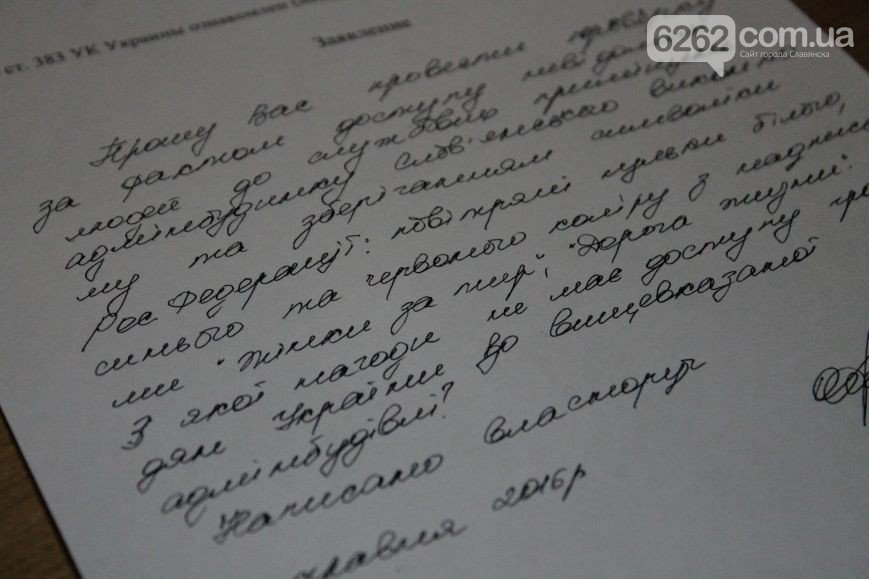 6262.com.ua
Сайт города Славянска
ст. 383 УК Украины ознакомлен
Заявление
Прошу Вас провести перевірку
за фактом доступу невідомих
людей до службових приміщень
адмінбудинку слов'янського викон
му та зберіганням символіки
Рос Федерації: повітряні кульки білого,
синього та червоного коліру з надписа
ми "Жінки за мир", "Дорога жизни".
З якої нагоди не має доступу гро
дян України до вищевказаної
адмінбудівлі?
Написано власноруч
травня 2016р